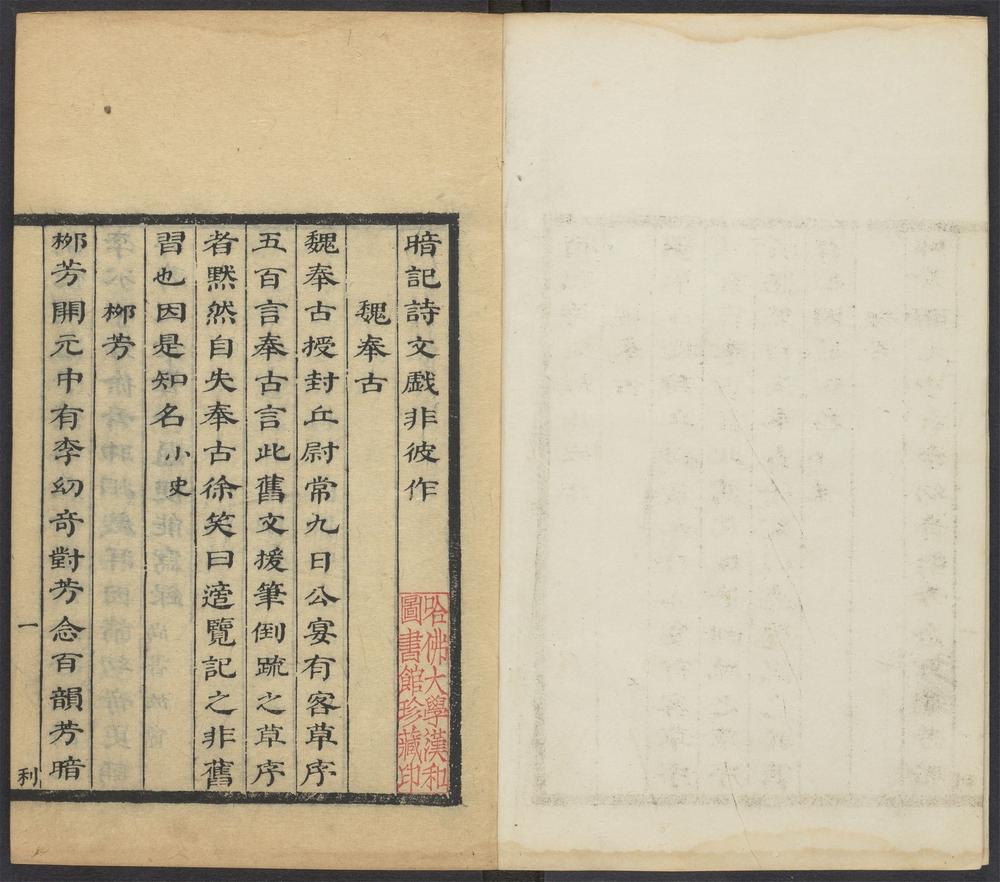 暗記詩文戲非彼作
魏奉古
魏奉古授封丘尉常九日公宴有客草序
五百言奉古言此舊文援筆倒䟽之草序
者默然自失奉古徐笑曰適覽記之非舊
習也因是知名小史
柳芳
柳芳開元中有李幼奇對芳念百韻芳暗
一
利
哈佛大學漢和
圖書館珍藏印